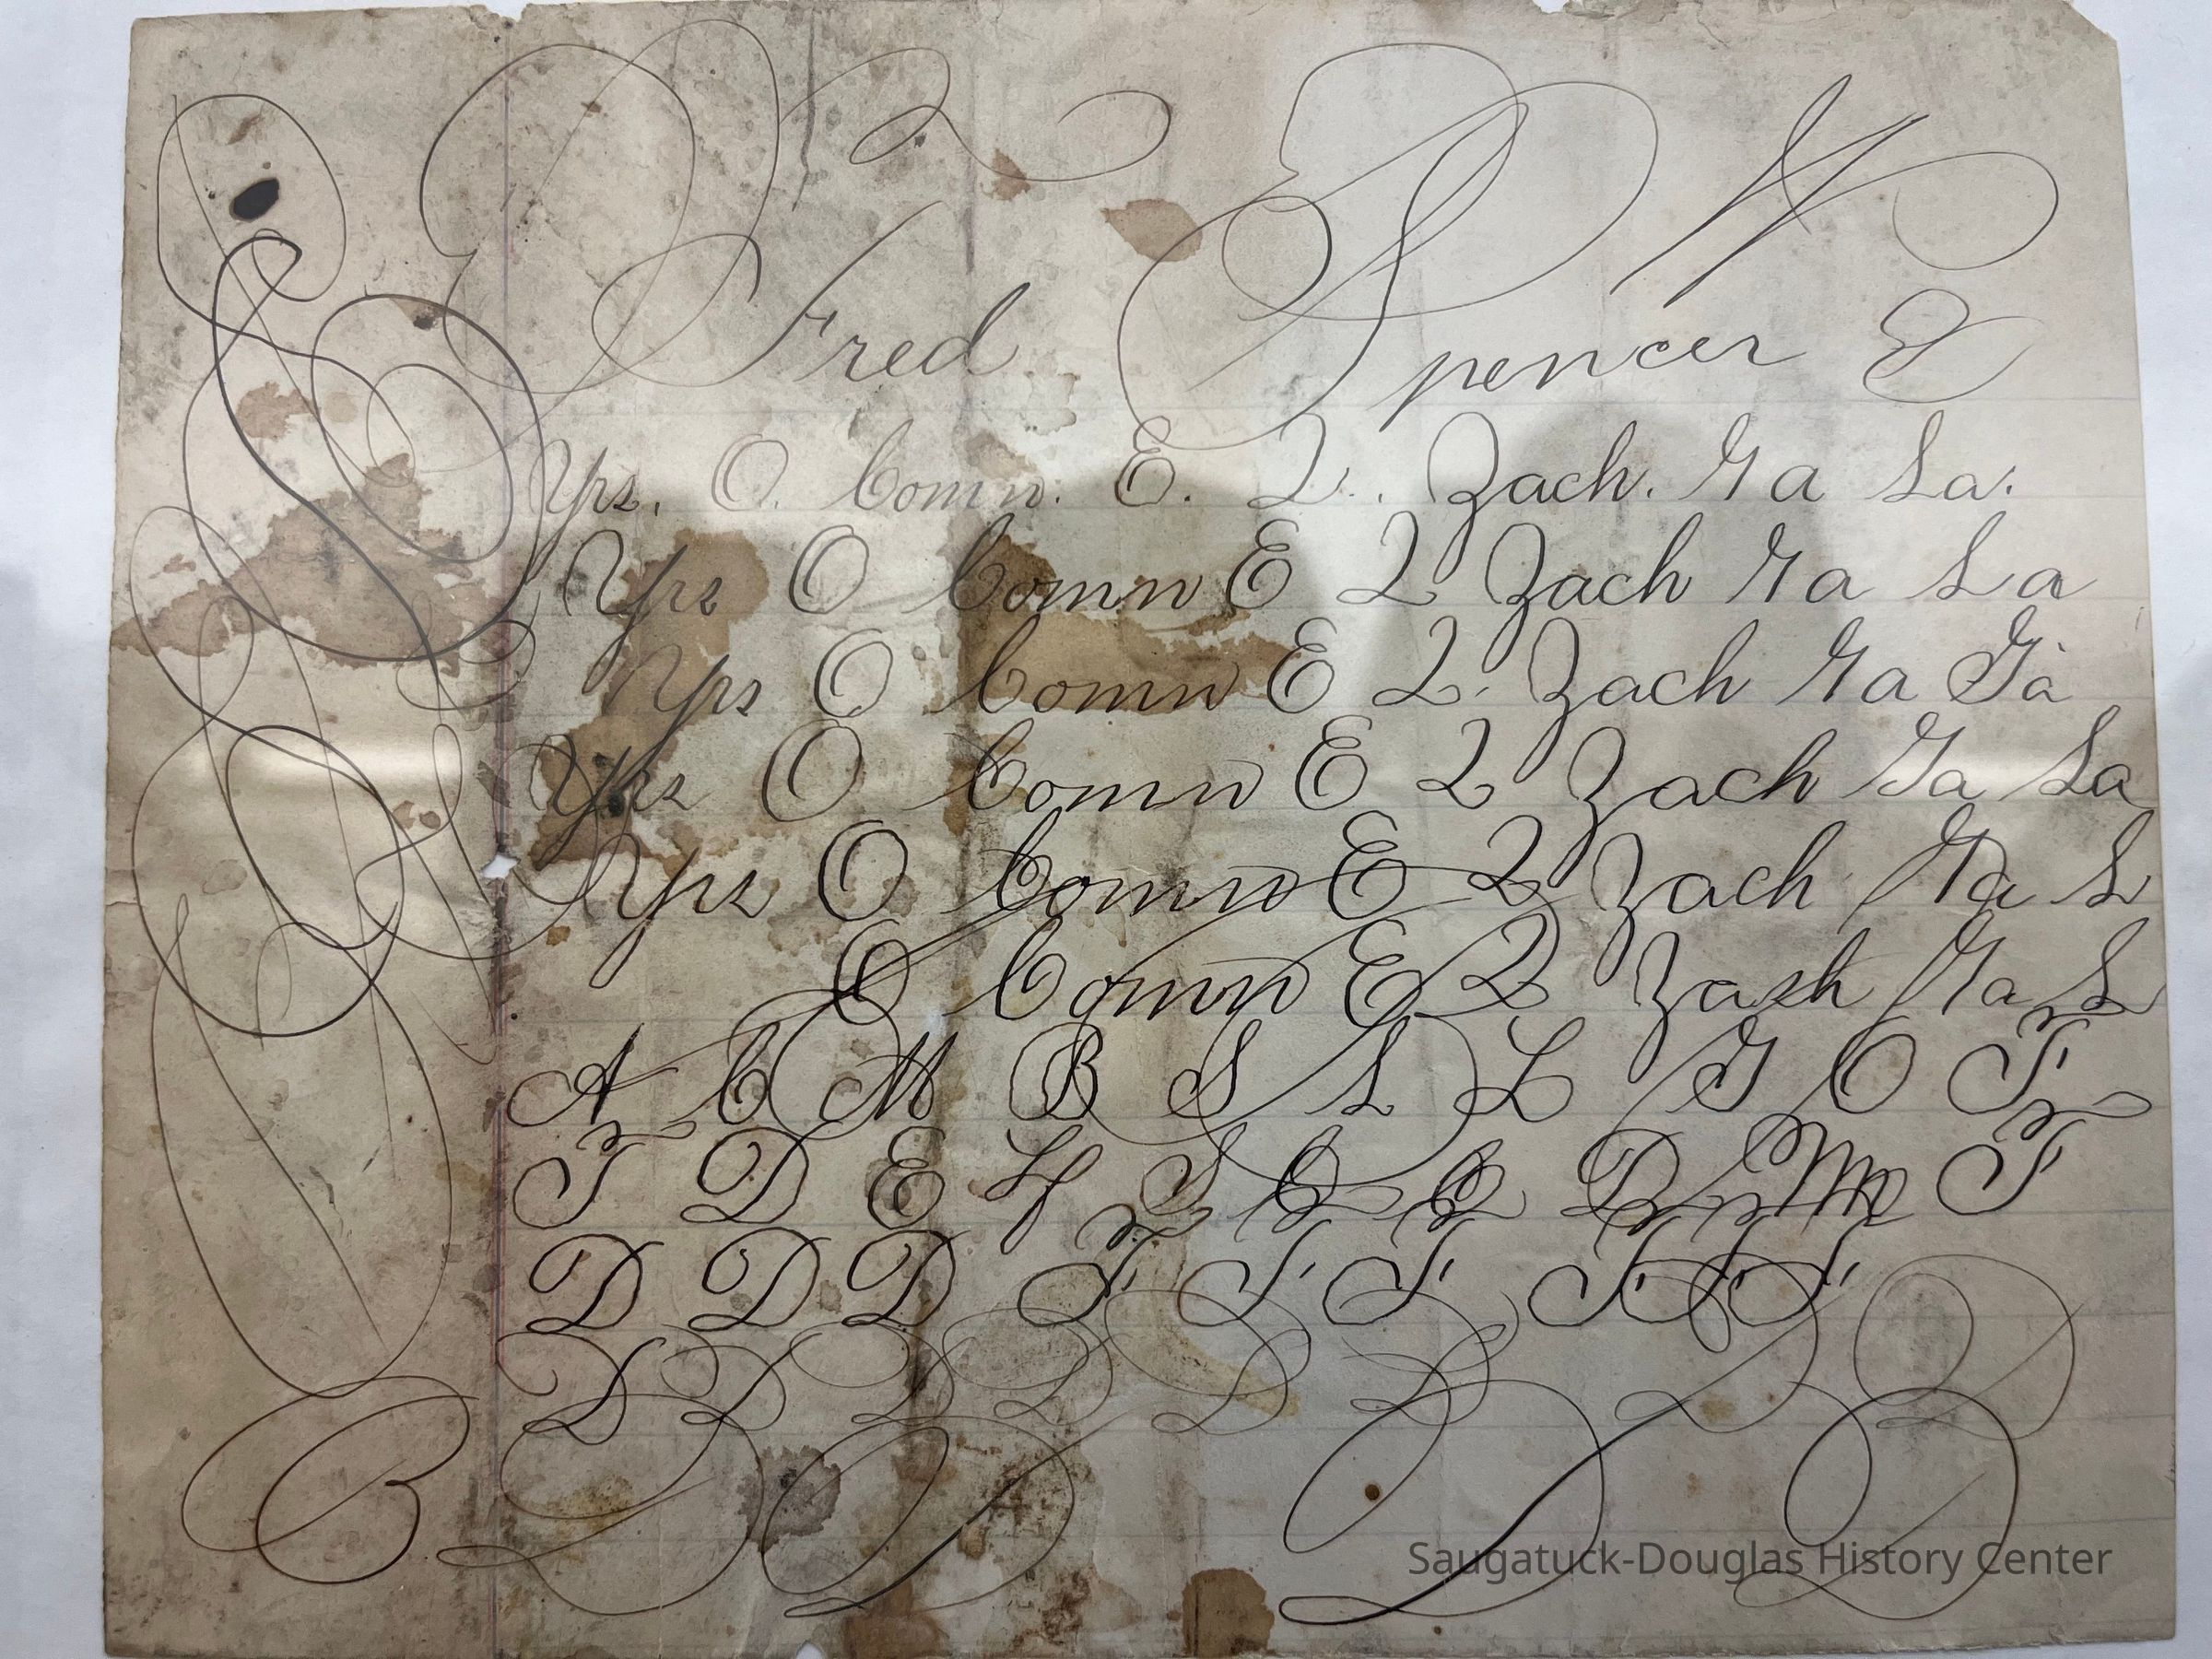 Fred Spencer
Yps. O. Comn. E. Q. Zach. Ga La.
Yps O Comn E Q Zach Ga La
Yps O Comn E Q Zach Ga Ga
Yps O Comn E Q Zach Ga La
Yps O Comn E Q Zach Ga L
O Comn E Q Zach Ga L
A C M B S L L G O F
T D E H S Q Q D M F
D D D F F F F F F
Saugatuck-Douglas History Center